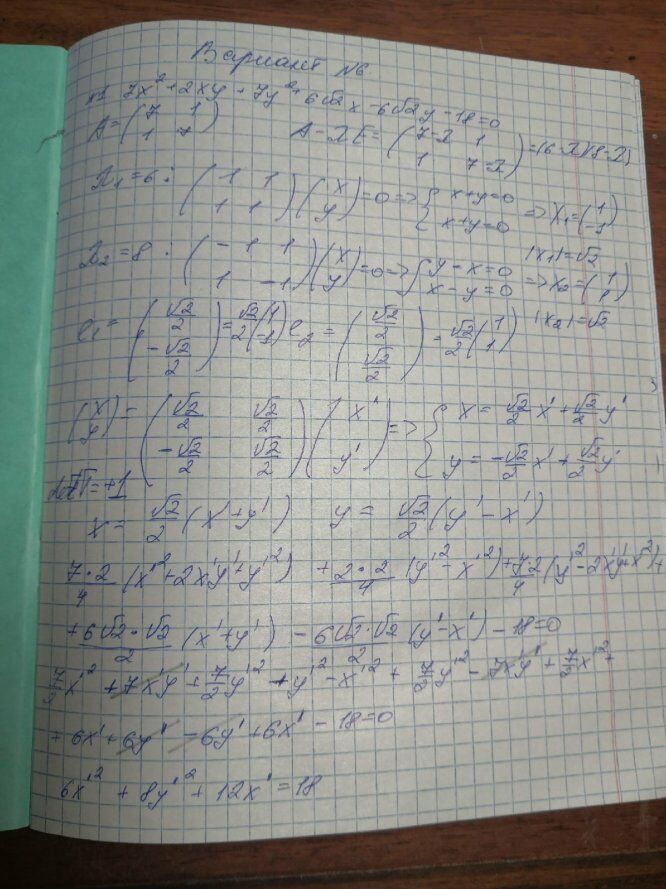 Вариант №6
№1 7x² + 2xy + 7y² + 6√2x - 6√2y - 18 = 0
A = (7 1; 1 7) A - λE = (7-λ 1; 1 7-λ) = (6-λ)(8-λ)
λ₁ = 6 : (1 1; 1 1)(x; y) = 0 => {x+y=0; x+y=0 => X₁ = (1; -1)
|x₁| = √2
λ₂ = 8 : (-1 1; 1 -1)(x; y) = 0 => {y-x=0; x-y=0 => X₂ = (1; 1)
e₁ = (√2/2; -√2/2) = √2/2 (1; -1) e₂ = (√2/2; √2/2) = √2/2 (1; 1) |x₂| = √2
(x; y) = (√2/2 √2/2; -√2/2 √2/2)(x'; y') => {x = √2/2 x' + √2/2 y'; y = -√2/2 x' + √2/2 y'
= +1
x = √2/2 (x' + y') y = √2/2 (y' - x')
7·2/4 (x'² + 2x'y' + y'²) + 2·2/4 (y'² - x'²) + 7·2/4 (y'² - 2x'y' + x'²) +
+ 6√2·√2/2 (x' + y') - 6√2·√2/2 (y' - x') - 18 = 0
7/2 x'² + 7x'y' + 7/2 y'² + y'² - x'² + 7/2 y'² - 7x'y' + 7/2 x'² +
+ 6x' + 6y' - 6y' + 6x' - 18 = 0
6x'² + 8y'² + 12x' = 18